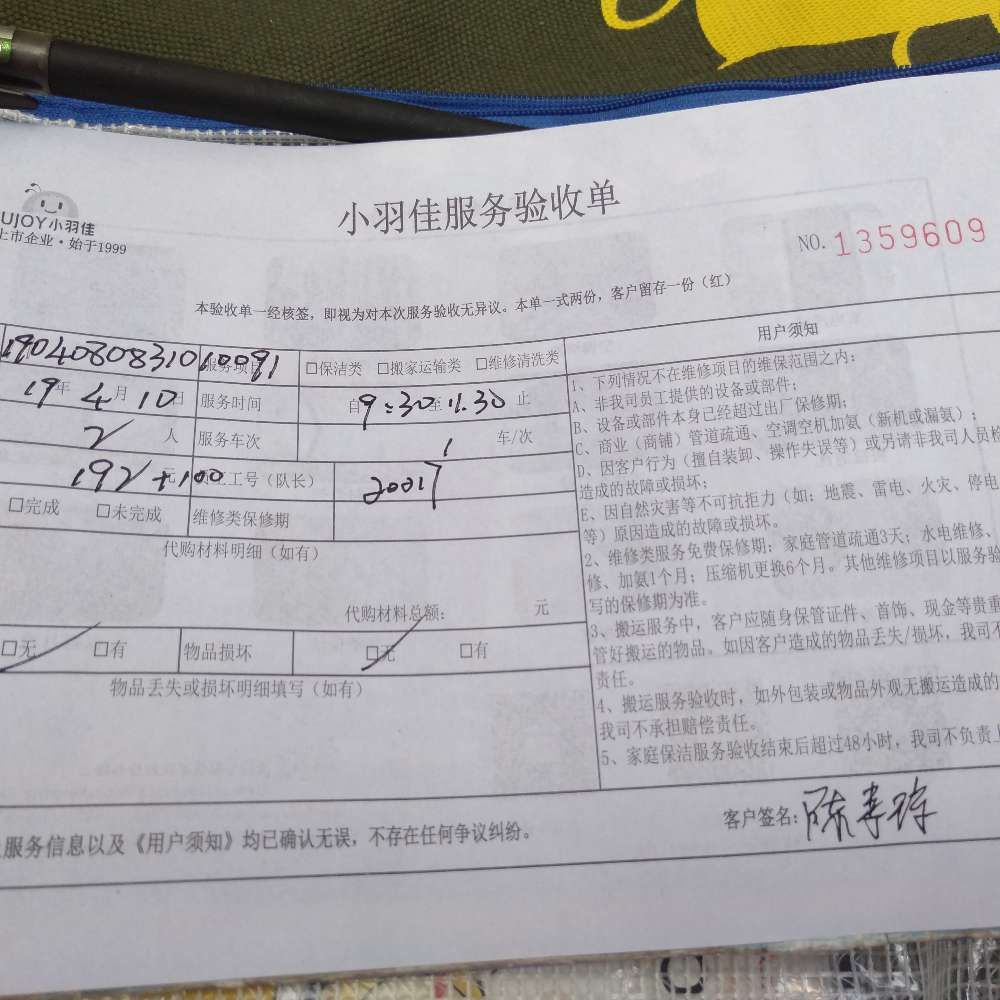 小羽佳服务验收单
UJOY小羽佳
上市企业·始于1999
NO. 1359609
本验收单一经核签，即视为对本次服务验收无异议。本单一式两份，客户留存一份（红）
服务项目 □保洁类 □搬家运输类 □维修清洗类
19年4月10日 服务时间 自9:30至11.30止
2人 服务车次 1 车/次
192+100 元 工号（队长） 20017
□完成 □未完成 维修类保修期
代购材料明细（如有）
代购材料总额： 元
□无 □有 物品损坏 □无 □有
物品丢失或损坏明细填写（如有）
用户须知
1、下列情况不在维修项目的维保范围之内：
A、非我司员工提供的设备或部件；
B、设备或部件本身已经超过出厂保修期；
C、商业（商铺）管道疏通、空调空机加氨（新机或漏氨）；
D、因客户行为（擅自装卸、操作失误等）或另请非我司人员检
造成的故障或损坏；
E、因自然灾害等不可抗拒力（如：地震、雷电、火灾、停电
等）原因造成的故障或损坏。
2、维修类服务免费保修期：家庭管道疏通3天；水电维修、
修、加氨1个月；压缩机更换6个月。其他维修项目以服务验
写的保修期为准。
3、搬运服务中，客户应随身保管证件、首饰、现金等贵重
管好搬运的物品。如因客户造成的物品丢失/损坏，我司不
责任。
4、搬运服务验收时，如外包装或物品外观无搬运造成的
我司不承担赔偿责任。
5、家庭保洁服务验收结束后超过48小时，我司不负责上
服务信息以及《用户须知》均已确认无误，不存在任何争议纠纷。
客户签名：陈